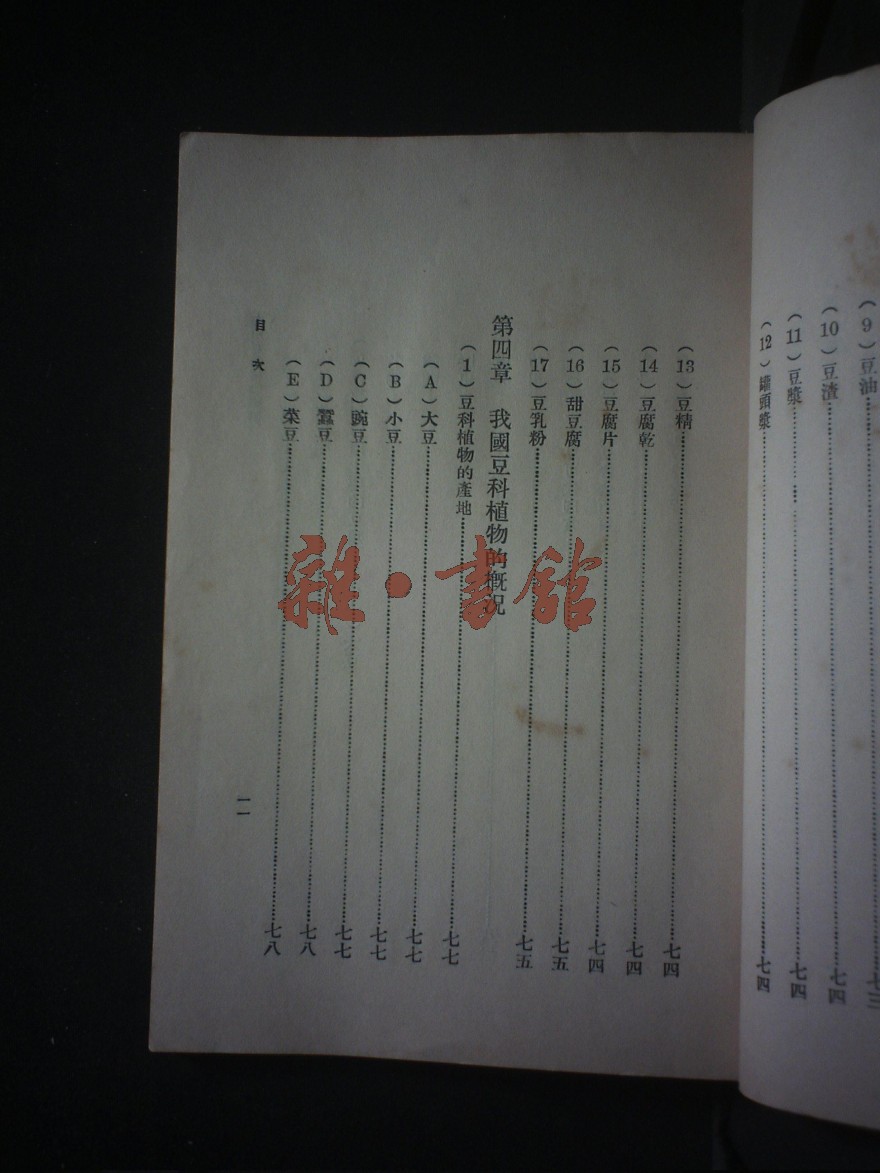 (9)豆油……七三
(10)豆渣……七四
(11)豆漿……七四
(12)罐頭漿……七四
(13)豆精……七四
(14)豆腐乾……七四
(15)豆腐片……七四
(16)甜豆腐……七五
(17)豆乳粉……七五
第四章 我國豆科植物的概況
(1)豆科植物的產地……七七
(A)大豆……七七
(B)小豆……七七
(C)豌豆……七七
(D)蠶豆……七八
(E)菜豆……七八
目次
一一
雜·書館